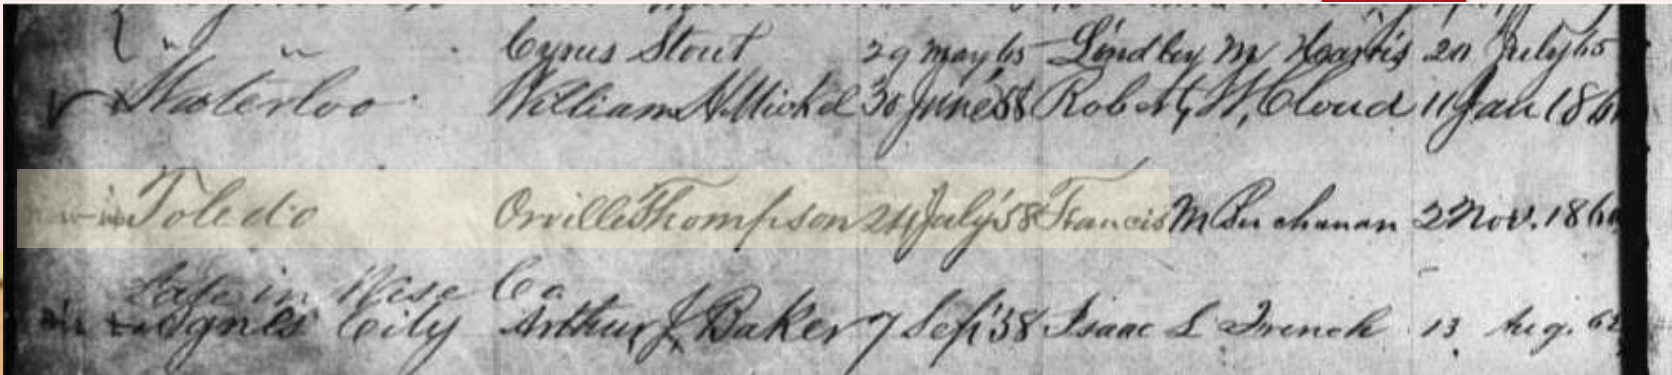 " " Cyrus Stout 29 May 65 Lindley M Harris 20 July 65
Waterloo William H Mickel 30 June '58 Robert, W, Cloud 11 Jan 186
Toledo Orville Thompson 24 July '58 Francis M Buchanan 2 Nov. 1860
Late in Wise Co
Agnes City Arthur, J, Baker 7 Sep '58 Isaac L French 13 Aug. 62